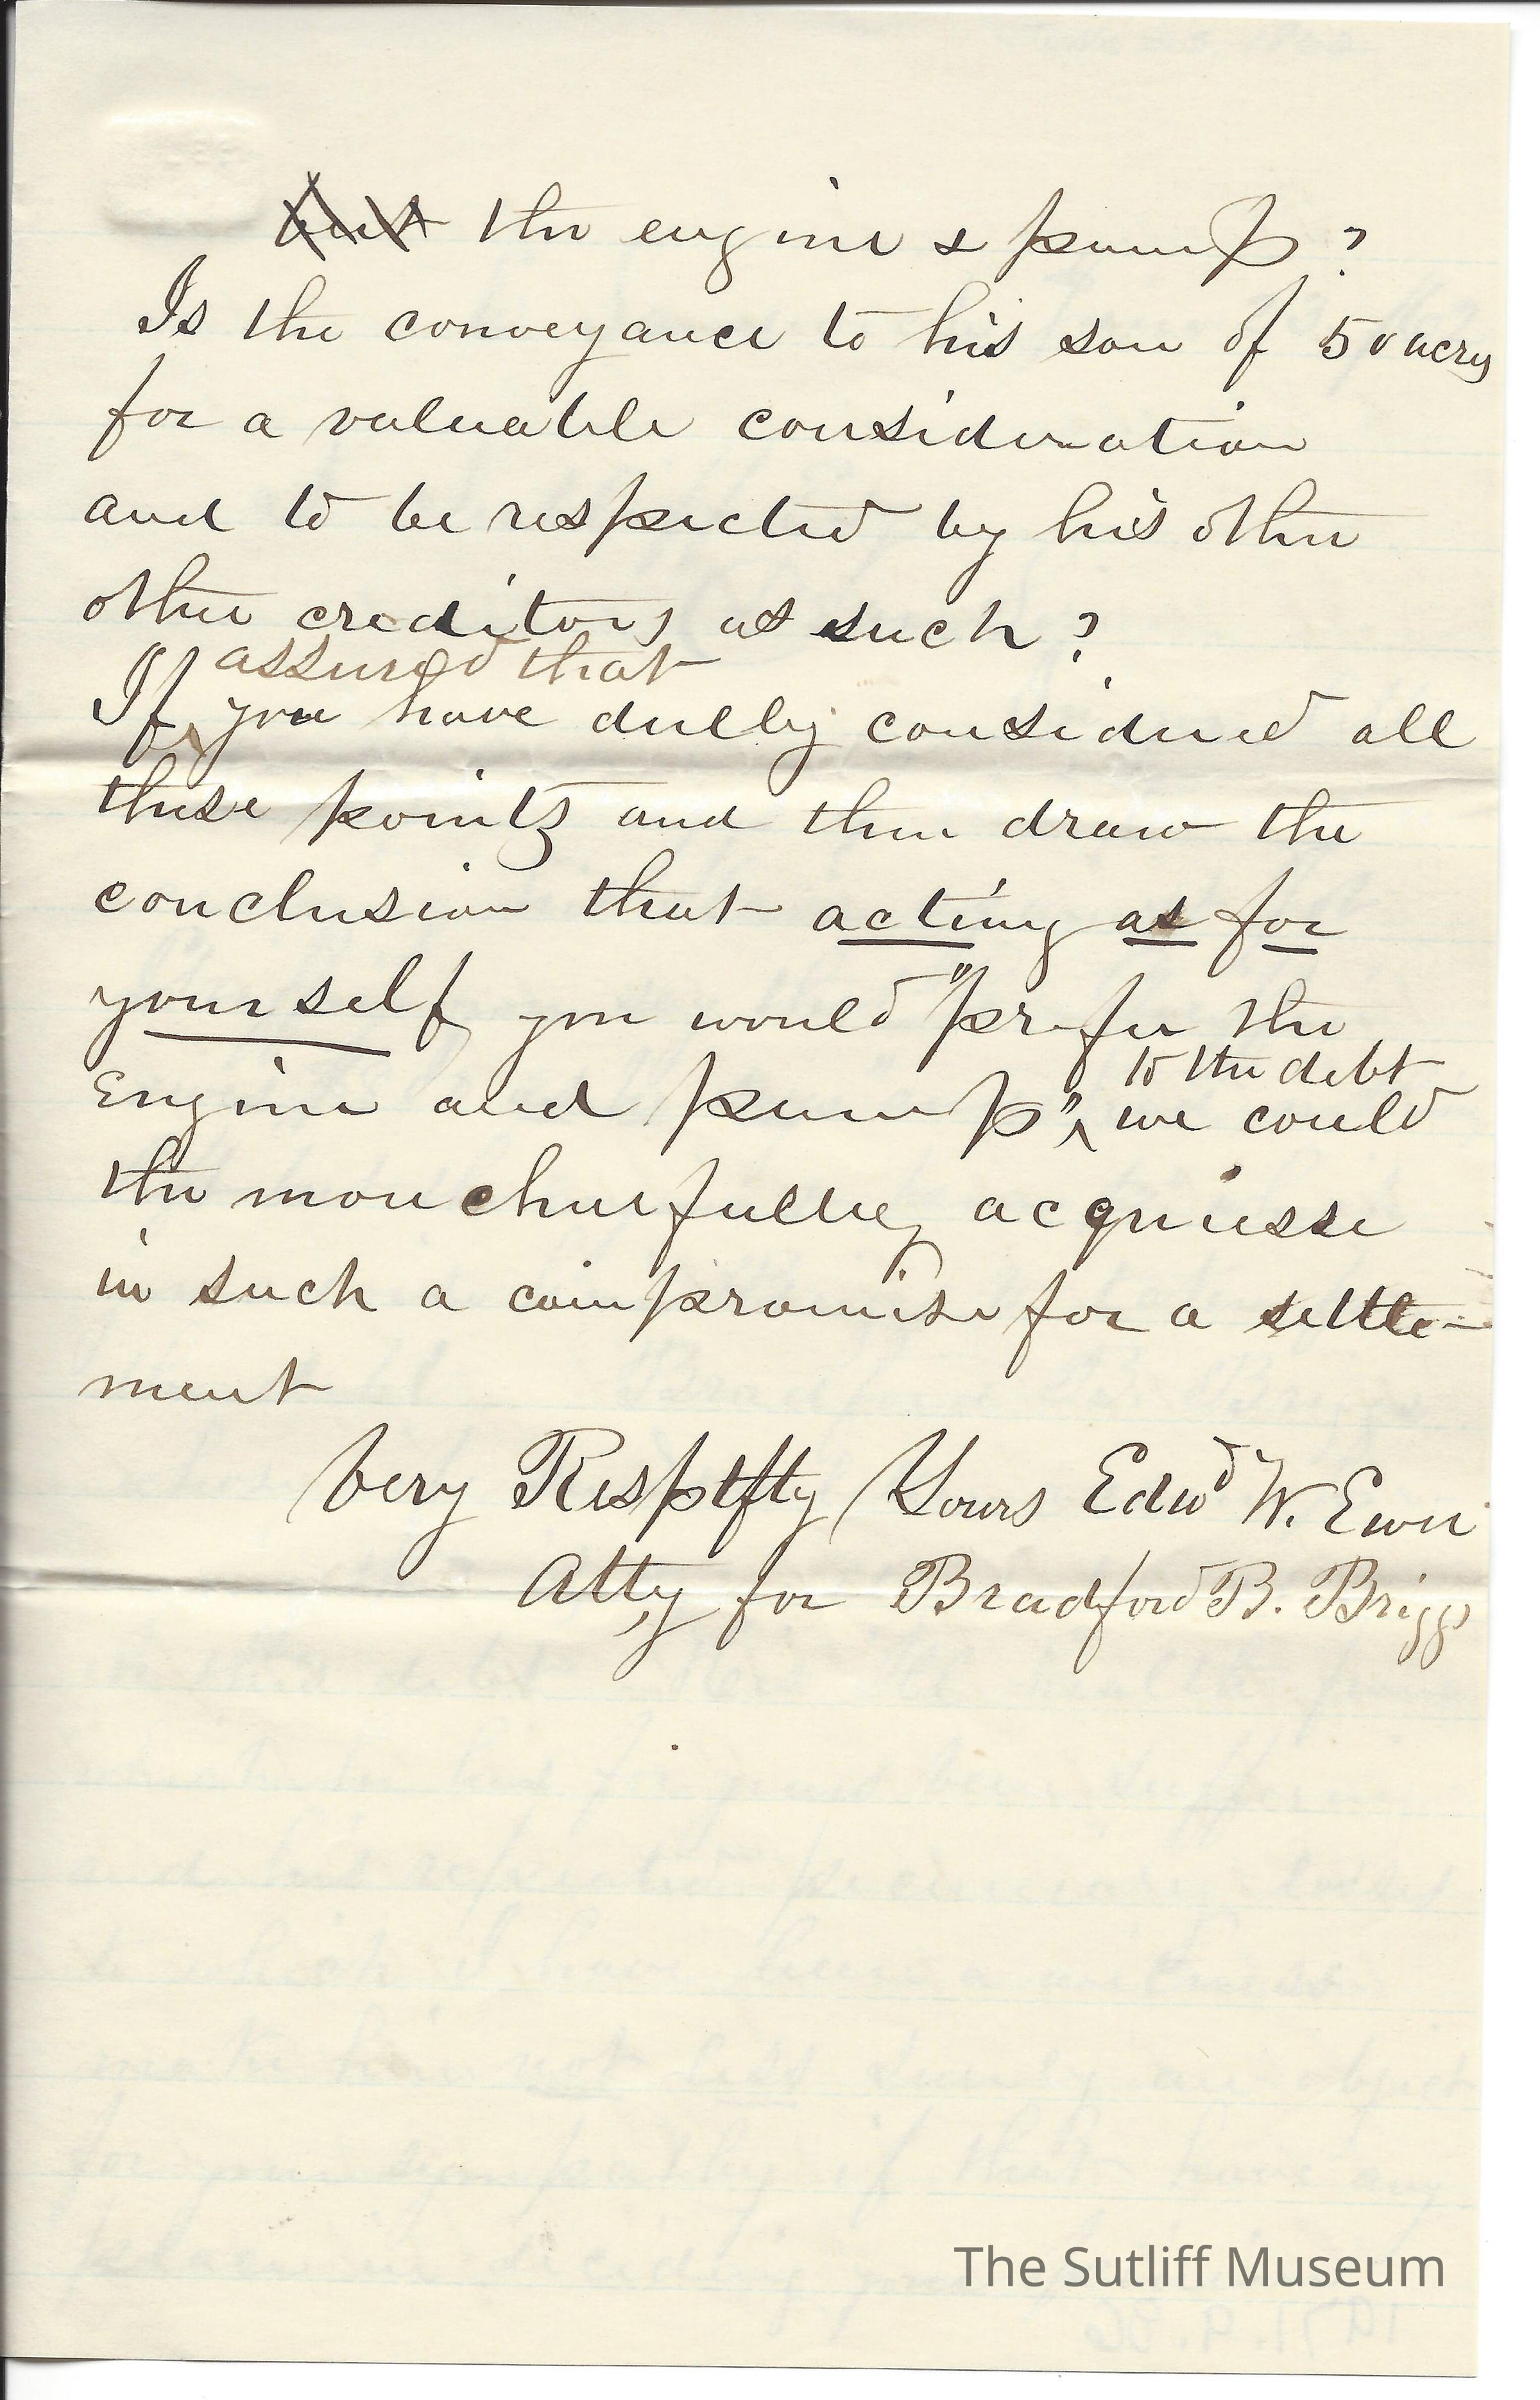 but the engine & pump?
Is the conveyance to his son of 50 acres
for a valuable consideration
and to be respected by his other
other creditors as such?
assured that
If you have dully considered all
these points and then draw the
conclusion that acting as for
yourself you would "prefer the
to the debt
Engine and pump", we could
the more cheerfully acquiesse
in such a compromise for a settle-
ment
Very Resptfly Yours Edwd W. Ewer
Atty for Bradford B. Briggs
The Sutliff Museum
1971.9.86